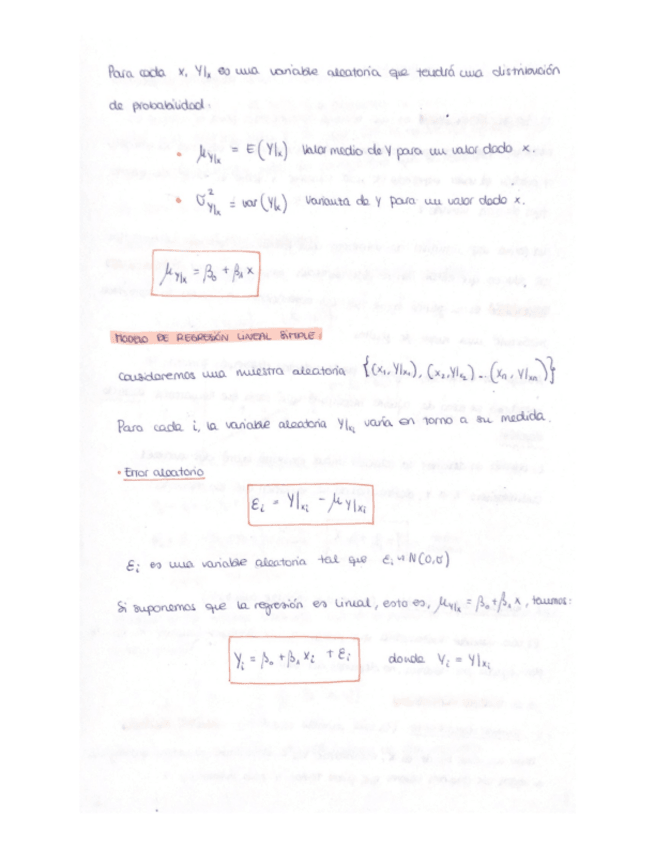 Para cada x, Y|x es una variable aleatoria que tendrá una distribución
de probabilidad:
• μY|x = E(Y|x) Valor medio de Y para un valor dado x.
• σ²Y|x = var(Y|x) Varianza de Y para un valor dado x.
μY|x = β₀ + β₁x
MODELO DE REGRESIÓN LINEAL SIMPLE:
Consideremos una muestra aleatoria {(x₁, Y|x₁), (x₂, Y|x₂) ... (xn, Y|xn)}
Para cada i, la variable aleatoria Y|xi varía en torno a su medida.
• Error aleatorio
εi = Y|xi - μY|xi
εi es una variable aleatoria tal que εi ~ N(0,σ)
Si suponemos que la regresión es lineal, esto es, μY|x = β₀ + β₁x, tenemos:
Yi = β₀ + β₁xi + εi donde Yi = Y|xi